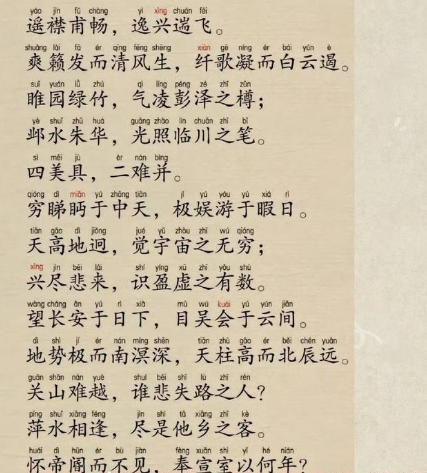 yáo jīn fǔ chàng yì xìng chuán fēi
遥襟甫畅，逸兴遄飞。
shuǎng lài fā ér qīng fēng shēng xiān gē níng ér bái yún è
爽籁发而清风生，纤歌凝而白云遏。
suī yuán lǜ zhú qì líng péng zé zhī zūn
睢园绿竹，气凌彭泽之樽；
yè shuǐ zhū huá guāng zhào lín chuān zhī bǐ
邺水朱华，光照临川之笔。
sì měi jù èr nán bìng
四美具，二难并。
qióng dì miǎn yú zhōng tiān jí yú yóu yú xiá rì
穷睇眄于中天，极娱游于暇日。
tiān gāo dì jiǒng jué yǔ zhòu zhī wú qióng
天高地迥，觉宇宙之无穷；
xìng jìn bēi lái shí yíng xū zhī yǒu shù
兴尽悲来，识盈虚之有数。
wàng cháng ān yú rì xià mù wú kuài yú yún jiān
望长安于日下，目吴会于云间。
dì shì jí ér nán míng shēn tiān zhù gāo ér běi chén yuǎn
地势极而南溟深，天柱高而北辰远。
guān shān nán yuè shuí bēi shī lù zhī rén
关山难越，谁悲失路之人？
píng shuǐ xiāng féng jìn shì tā xiāng zhī kè
萍水相逢，尽是他乡之客。
huái dì hūn ér bù jiàn fèng xuān shì yǐ hé nián
怀帝阍而不见，奉宣室以何年？